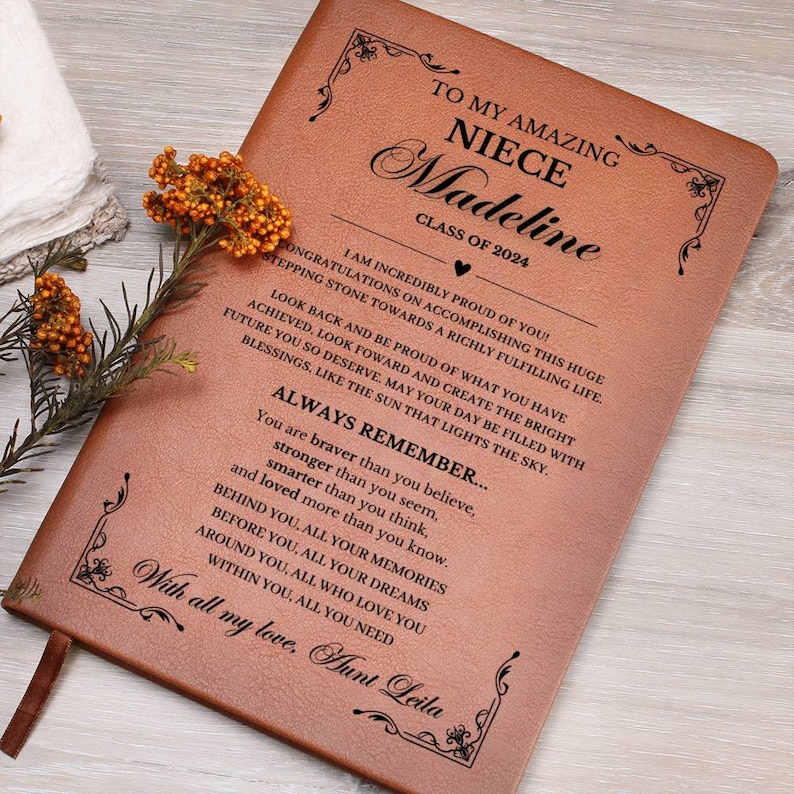 TO MY AMAZING
NIECE
Madeline
CLASS OF 2024
I AM INCREDIBLY PROUD OF YOU!
CONGRATULATIONS ON ACCOMPLISHING THIS HUGE
STEPPING STONE TOWARDS A RICHLY FULFILLING LIFE.
LOOK BACK AND BE PROUD OF WHAT YOU HAVE
ACHIEVED, LOOK FOWARD AND CREATE THE BRIGHT
FUTURE YOU SO DESERVE. MAY YOUR DAY BE FILLED WITH
BLESSINGS, LIKE THE SUN THAT LIGHTS THE SKY.
ALWAYS REMEMBER...
You are braver than you believe,
stronger than you seem,
smarter than you think,
and loved more than you know.
BEHIND YOU, ALL YOUR MEMORIES
BEFORE YOU, ALL YOUR DREAMS
AROUND YOU, ALL WHO LOVE YOU
WITHIN YOU, ALL YOU NEED
With all my love, Aunt Leila